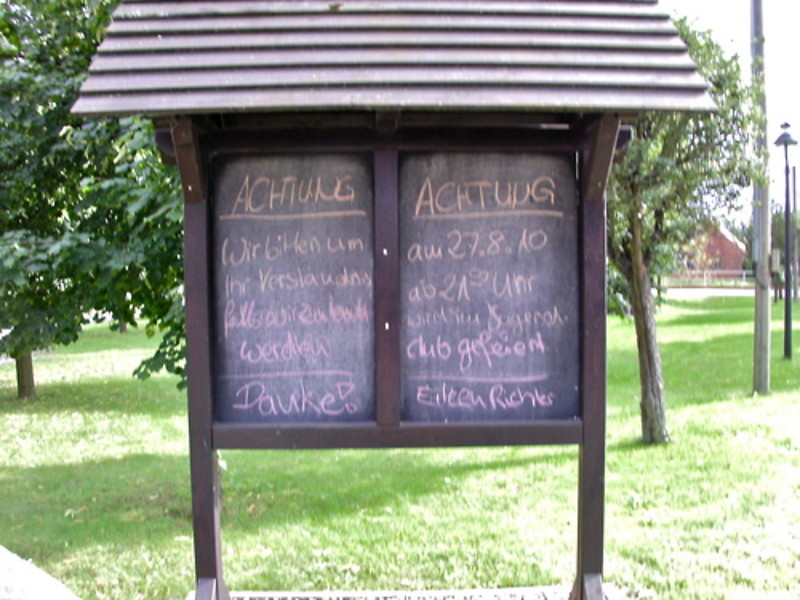 ACHTUNG
Wir bitten um
Ihr Verständnis
falls wir zu laut
werden
Danke!
ACHTUNG
am 27.8.10
ab 21 Uhr
wird im Jugend-
club gefeiert
Eileen Richter